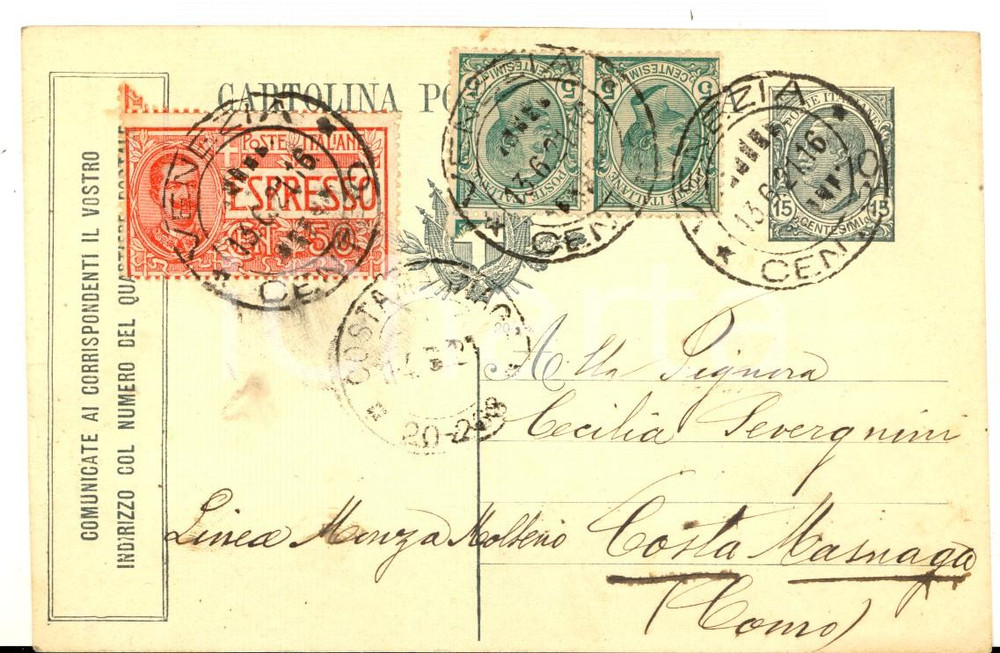 CARTOLINA PO
COMUNICATE AI CORRISPONDENTI IL VOSTRO
INDIRIZZO COL NUMERO DEL QUARTIERE POSTALE
POSTE ITALIANE
ESPRESSO
CENT. 50
VENEZIA
CENTRO
5 CENTESIMI 5
POSTE ITALIANE
VENEZIA
CENTRO
5 CENTESIMI 5
POSTE ITALIANE
VENEZIA
13.6.21.16
CENTRO
POSTE ITALIANE
15 CENTESIMI 15
COSTA MASNAGA
Alla Signora
Cecilia Severgnini
Linea Monza Molteno
Costa Masnaga
(Como)